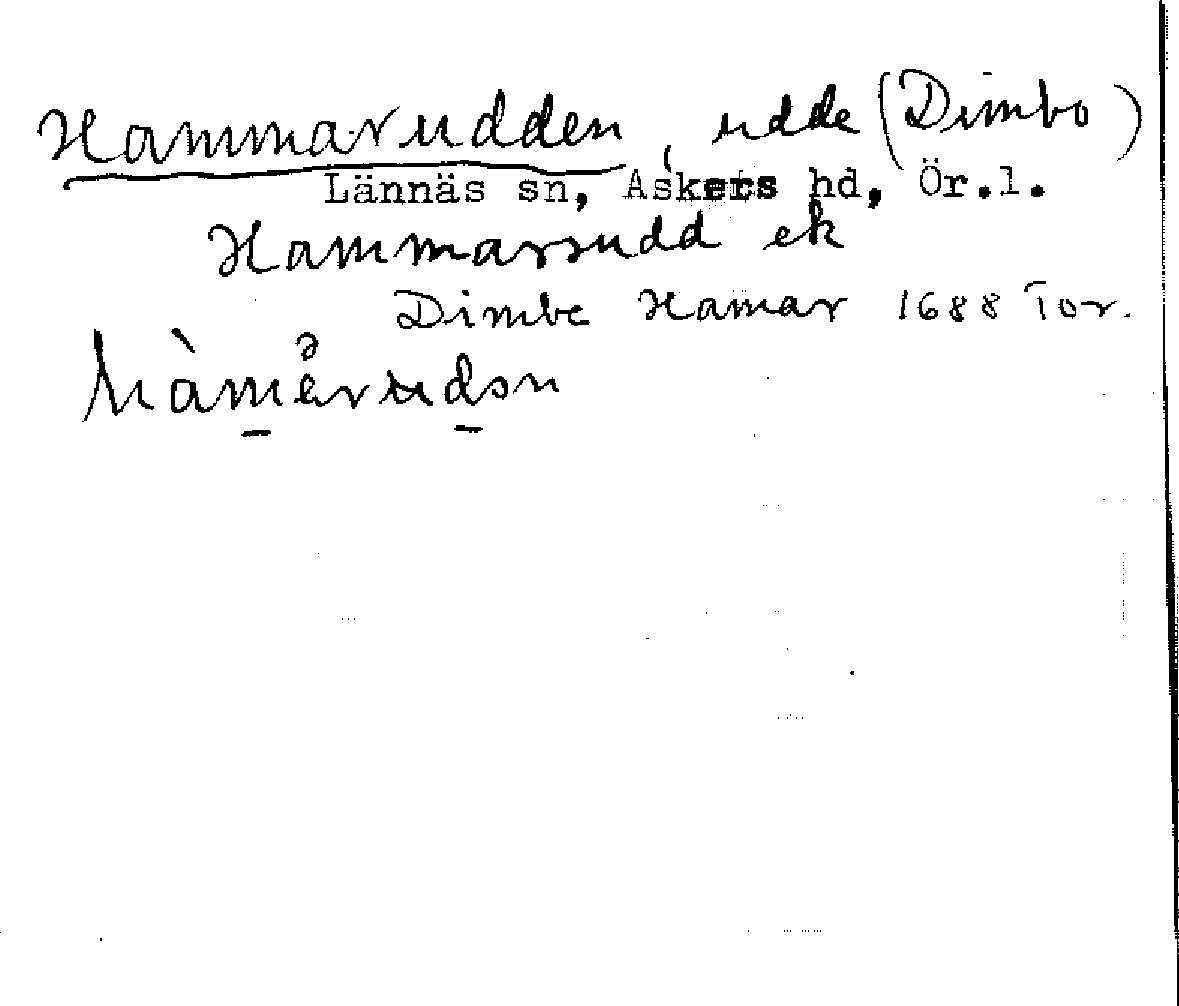 Hammarudden, udde (Dimbo)
Länнäs sn, Askers hd, Ör.l.
Hammarsudd ek
Dimbe Hamar 1688 Tor.